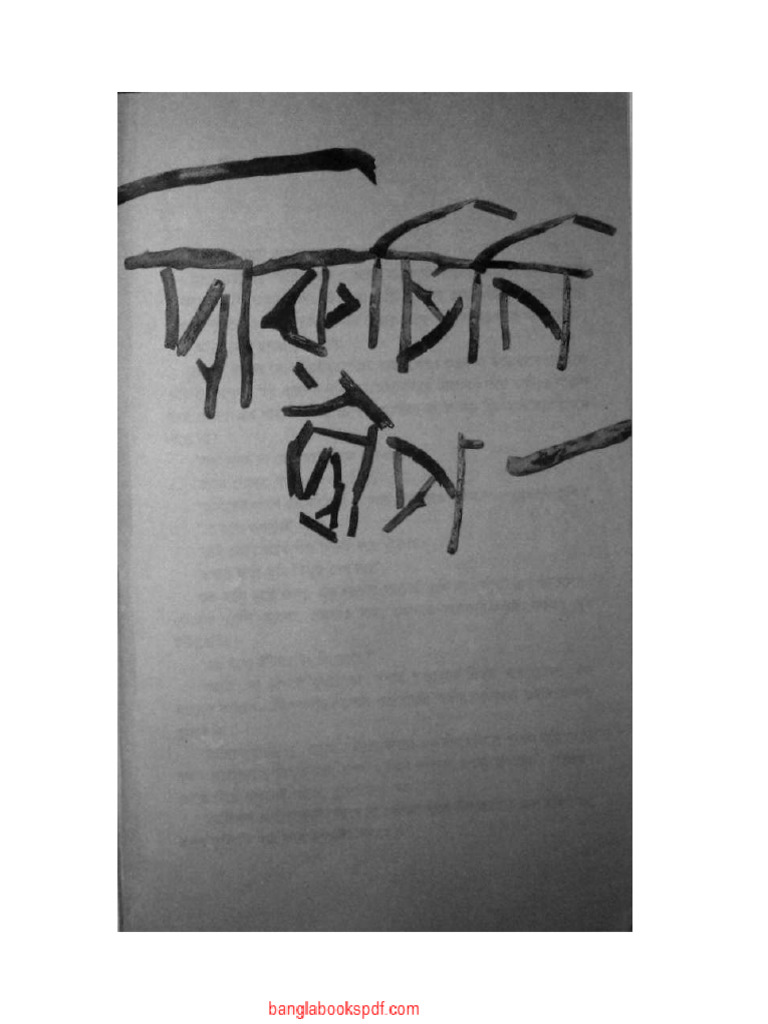 দারুচিনি
দ্বীপ
banglabookspdf.com